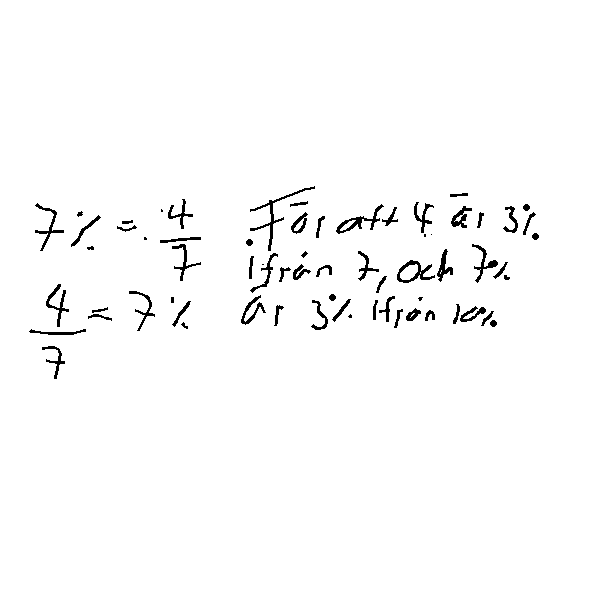 7% = 4/7 För att 4 är 3%
ifrån 7, och 7%
4/7 = 7% är 3% ifrån 10%